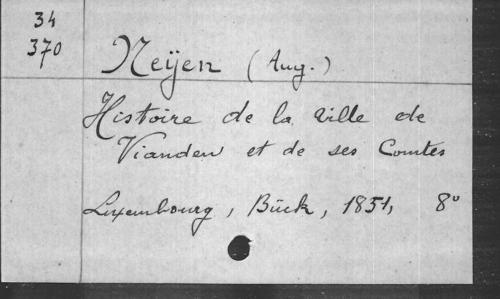 34
370
Neÿen (Aug.)
Histoire de la ville de
Vianden et de ses Comtes
Luxembourg, Bück, 1851, 8°